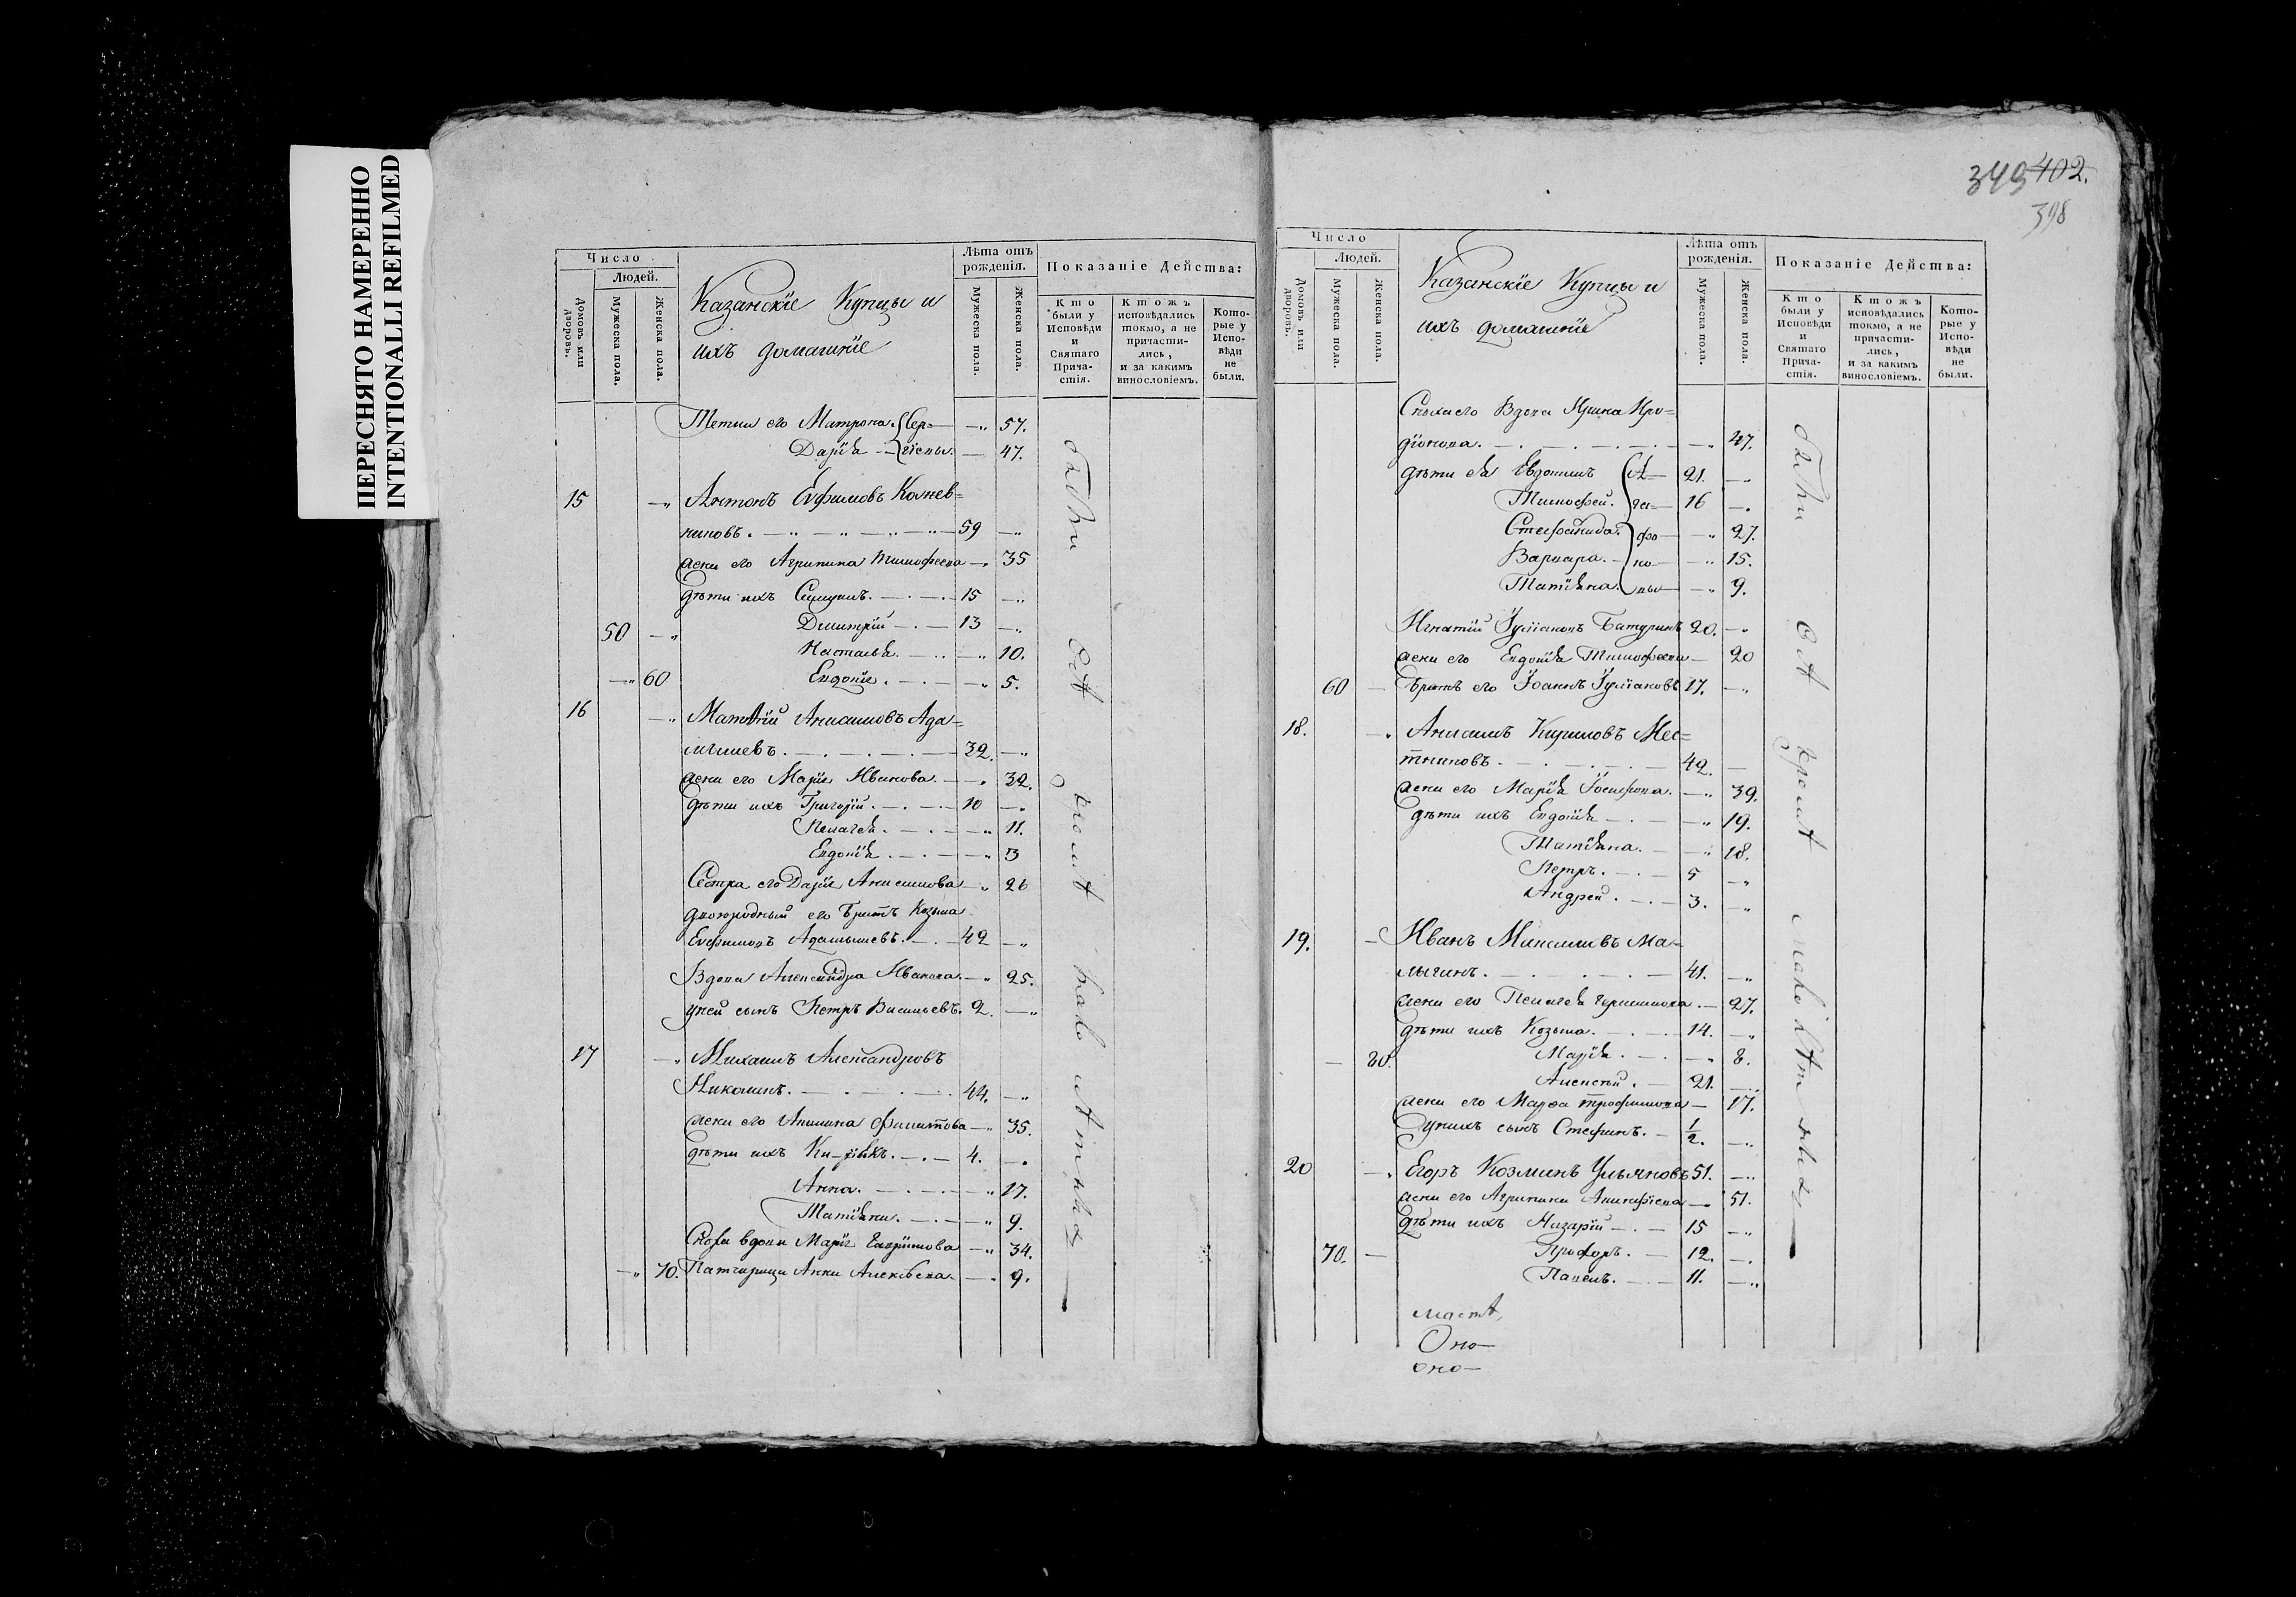 ПЕРЕСНЯТО НАМЕРЕННО
INTENTIONALLI REFILMED
Число
Людей.
Домовъ или дворовъ.
Мужеска пола.
Женска пола.
Казанскіе Купцы и
ихъ домашніе
Лѣта отъ рожденія.
Мужеска пола.
Женска пола.
Показаніе Действа:
Кто были у Исповѣди и Святаго Прича- стія.
Ктожъ исповѣдались токмо, а не причасти- лись, и за какимъ винословіемъ.
Кото- рые у Испо- вѣди не были.
Тетки его Матрона Сер= — 57.
Дарія гіевы. — 47.
15 Антонъ Евфимовъ Кожев=
никовъ. 59 —
жена его Агрипина Тимофеева — 35
дѣти ихъ 15 —
50 — Дмитрій — 13 —
Наталья. — 10.
— 60 Евдокія. — 5.
16 Матвѣй Анисимовъ Ада=
мышевъ. 32. —
жена его Марія Иванова. — 32.
дѣти ихъ Григорій. — 10 —
Пелагея. — 11.
Евдокія. — 3
Сестра его Дарія Анисимова — 26
двоюродный его Братъ Козьма
Евфимовъ Адамышевъ. — 42 —
Вдова Александра Иванова. — 25.
у ней сынъ Петръ Васильевъ. 2. —
17 Михаилъ Александровъ
44. —
жена его Акилина Филитова — 35.
дѣти ихъ 4. —
Анна. — 17.
Татіяна. — 9.
Сноха вдова Марія — 34.
— 70. Анна Алексѣева. — 9.
349 402.
398
Число
Людей.
Домовъ или дворовъ.
Мужеска пола.
Женска пола.
Казанскіе Купцы и
ихъ домашніе
Лѣта отъ рожденія.
Мужеска пола.
Женска пола.
Показаніе Действа:
Кто были у Исповѣди и Святаго Прича- стія.
Ктожъ исповѣдались токмо, а не причасти- лись, и за какимъ винословіемъ.
Кото- рые у Испо- вѣди не были.
Сноха его Вдова Ирина Иро=
діонова. — 47.
дѣти ея Евдокимъ А— 21. —
Тимофей. га— 16 —
Стефанида. фо— — 27.
Варвара. но— — 15.
Татіяна. вы— — 9.
Игнатій Іуліановъ Батуринъ 20. —
жена его Евдокія Тимофеева — 20
60 — Братъ его Іоаннъ Іуліановъ 17. —
18. Анисимъ Кириловъ Мес=
тниковъ. 42. —
жена его Марія Іосифова. — 39.
дѣти ихъ Евдокія — 19.
Татіяна. — 18.
Петръ. — 5 —
Андрей. — 3. —
19. Иванъ Ма=
лыгинъ. 41. —
жена его Пелагея Герасимова. — 27.
дѣти ихъ Козьма. — 14. —
— 80. Марія. — 8.
Алексѣй. — 21. —
жена его Марѳа Трофимова — 17.
у нихъ сынъ Стефанъ. — 1/2. —
20 Егоръ Козминъ Ульяновъ 51. —
жена его Агрипина — 51.
дѣти ихъ Назарій — 15 —
70. — 12. —
Павелъ. — 11. —
Оно—
оно—